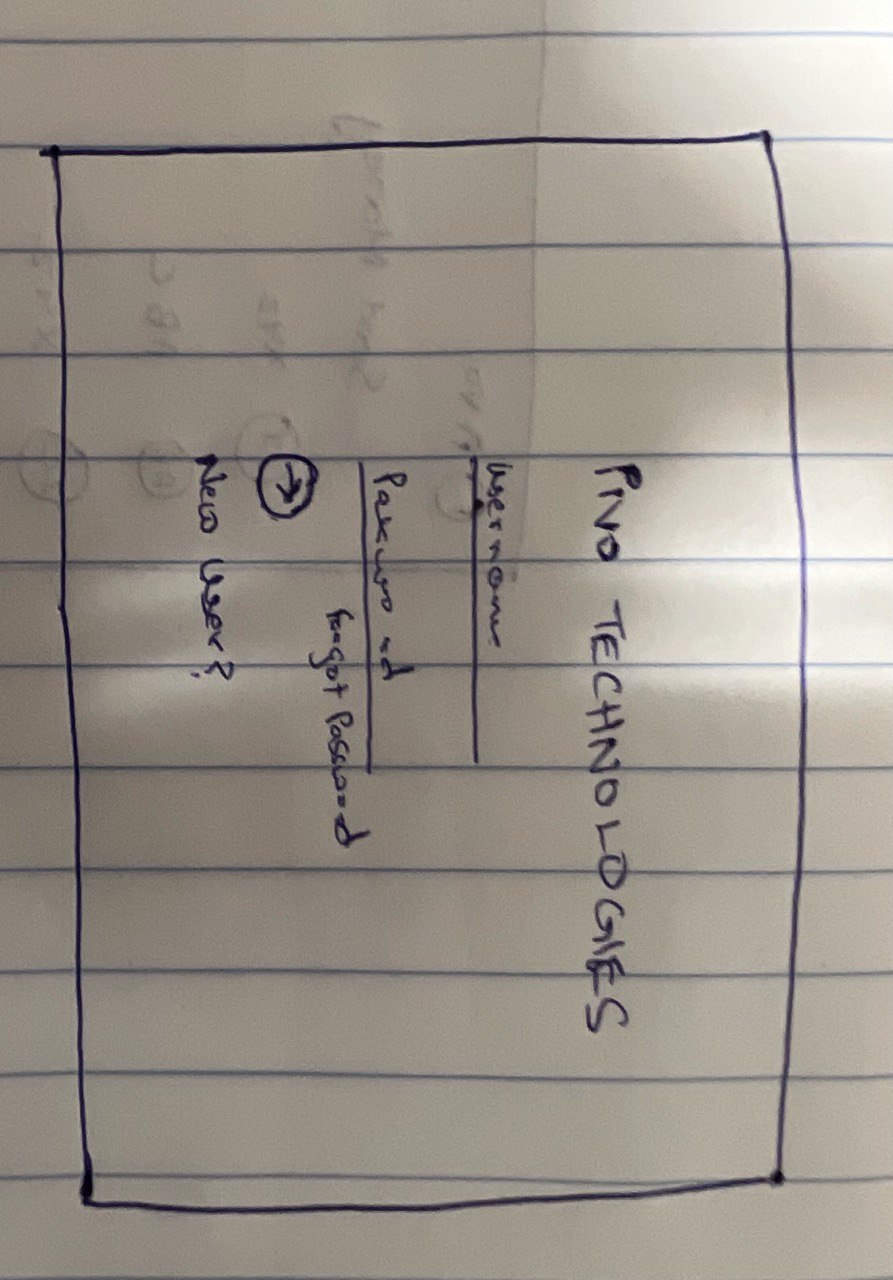 PIVO TECHNOLOGIES
Username
Password
forgot Password
New User?
XYZ
ABC